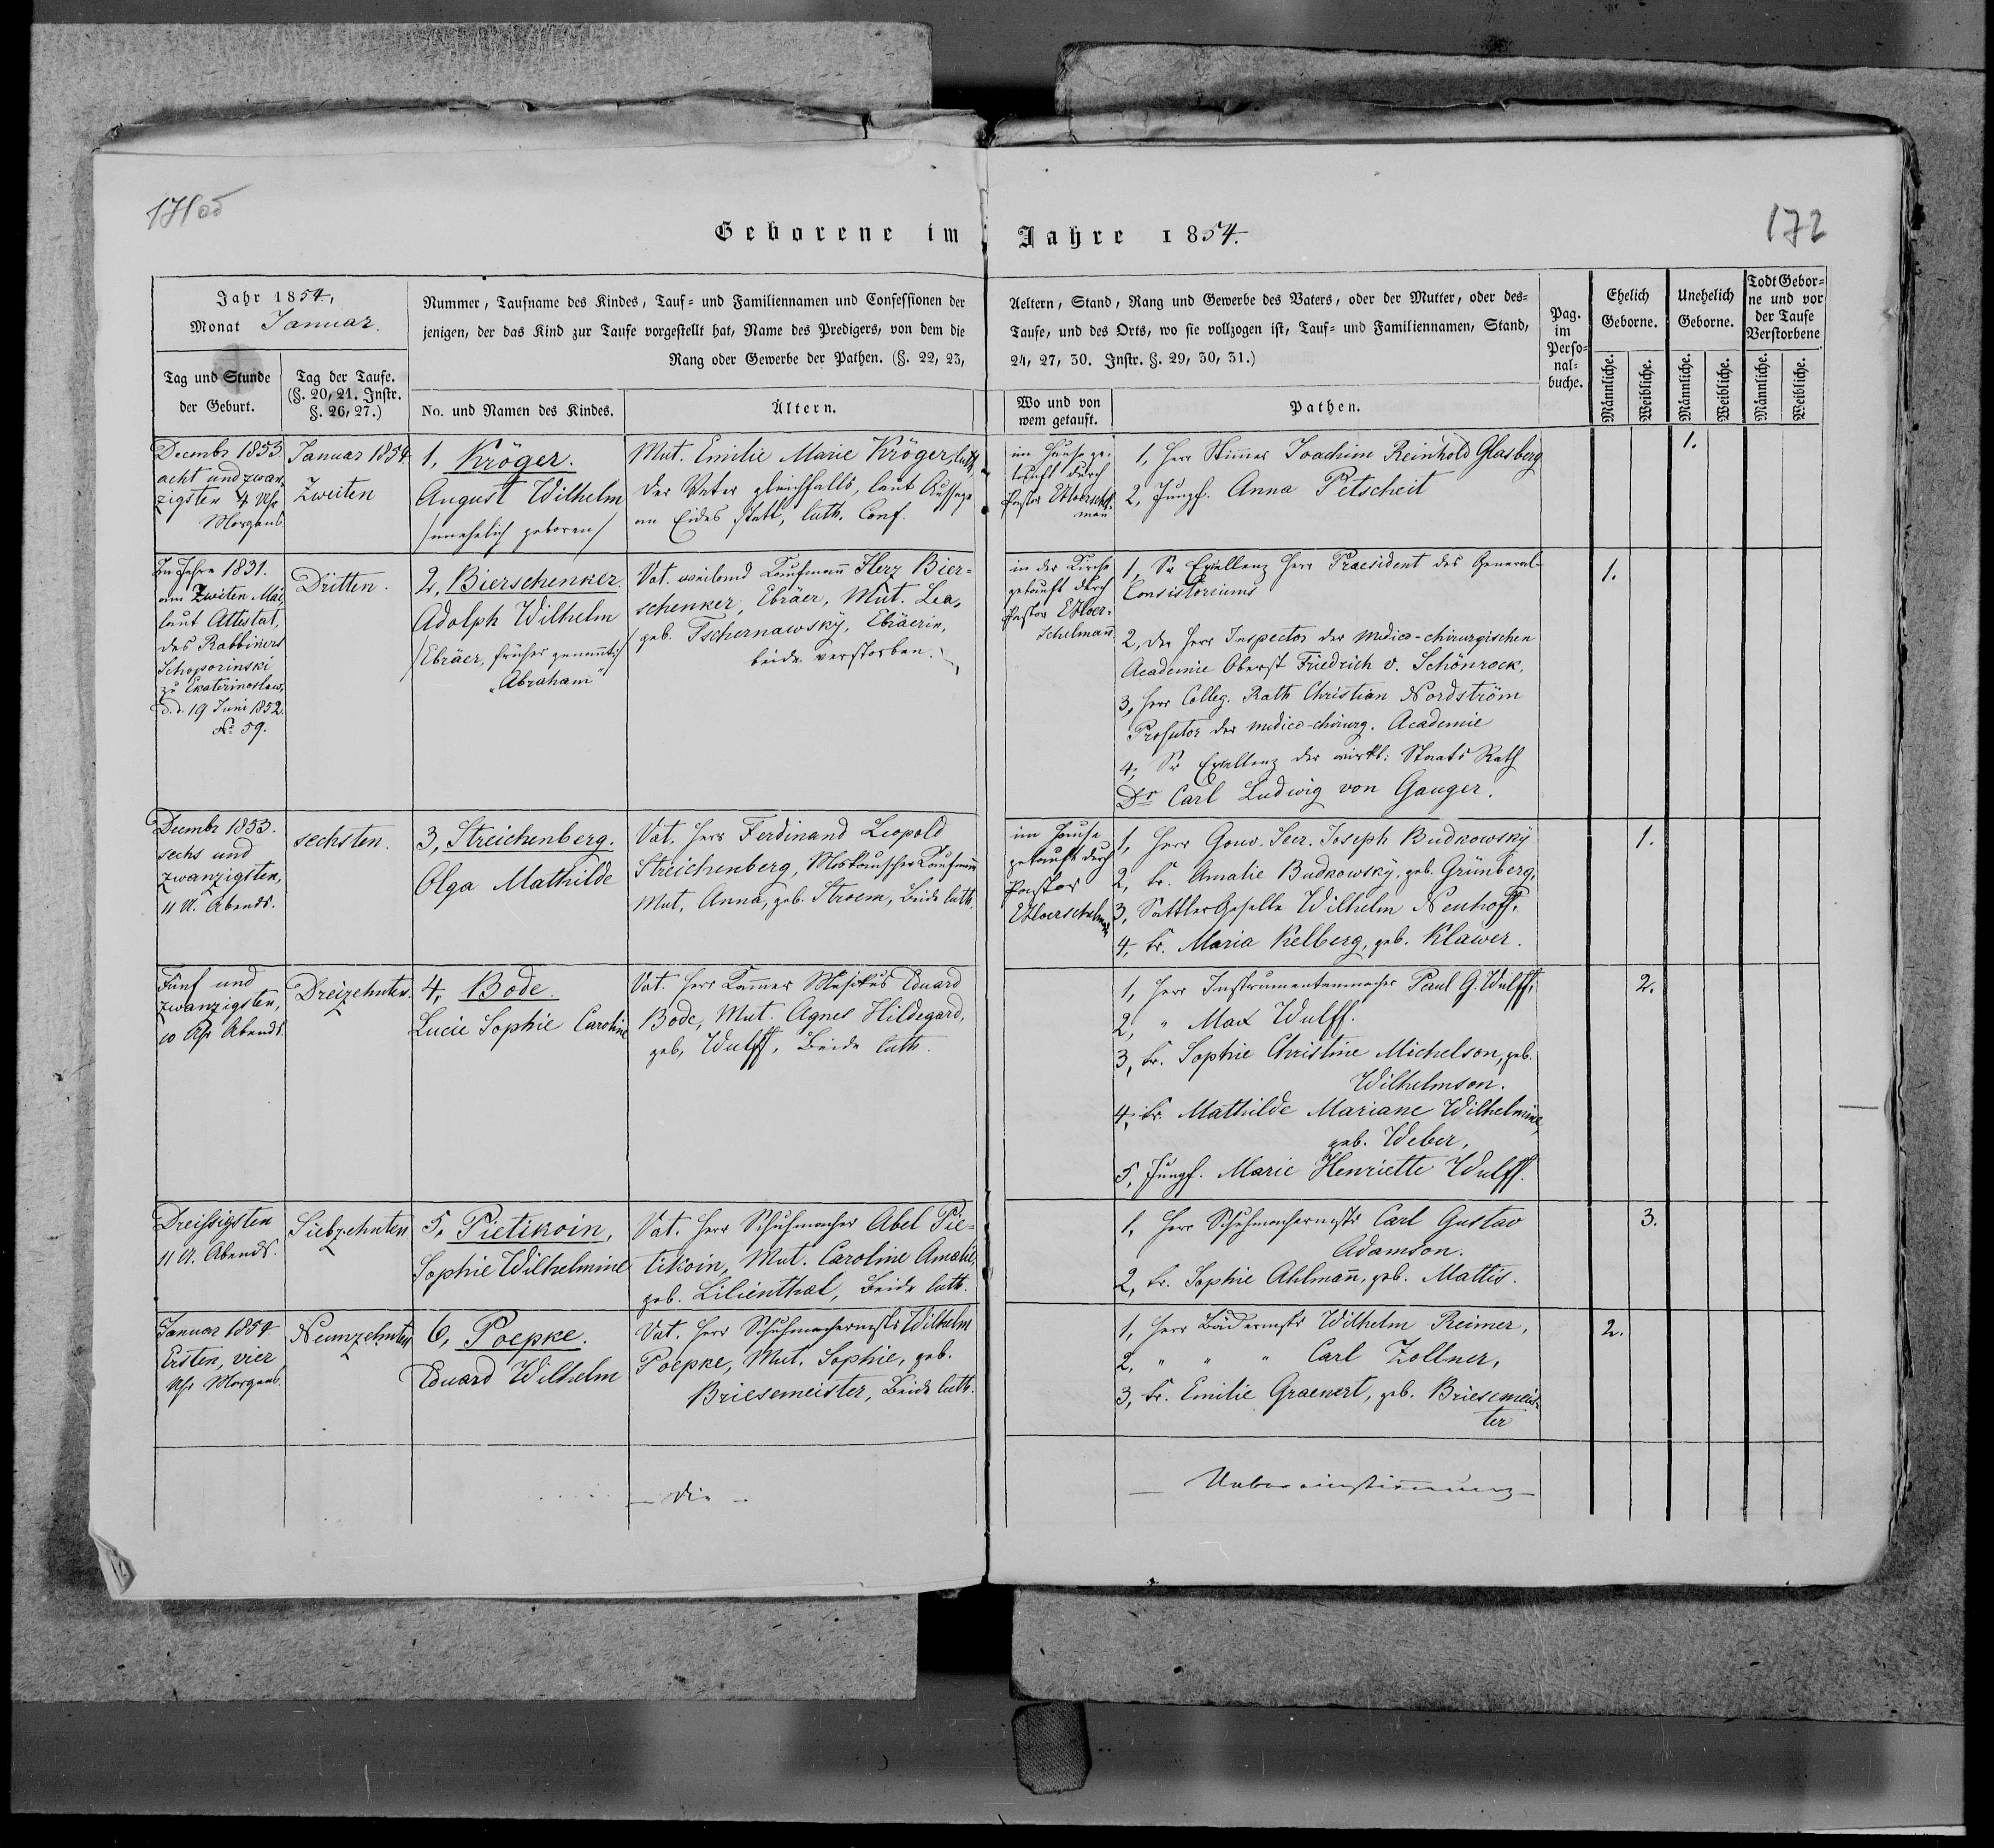 171 об
172
Geborene im Jahre 1854.
Jahr 1854,
Monat Januar.
Tag und Stunde
der Geburt.
Tag der Taufe.
(§. 20, 21. Instr.
§. 26, 27.)
Nummer, Taufname des Kindes, Tauf- und Familiennamen und Confessionen der
jenigen, der das Kind zur Taufe vorgestellt hat, Name des Predigers, von dem die
Rang oder Gewerbe der Pathen. (§. 22, 23,
No. und Namen des Kindes.
Ältern.
Aeltern, Stand, Rang und Gewerbe des Vaters, oder der Mutter, oder des-
Taufe, und des Orts, wo sie vollzogen ist, Tauf- und Familiennamen, Stand,
24, 27, 30. Instr. §. 29, 30, 31.)
Wo und von
wem getauft.
Pathen.
Pag.
im
Perso-
nal-
buche.
Ehelich
Geborne.
Unehelich
Geborne.
Todt Gebor-
ne und vor
der Taufe
Verstorbene
Männliche.
Weibliche.
Männliche.
Weibliche.
Männliche.
Weibliche.
Decembr 1853
acht und zwan-
zigsten 4 Uhr
Morgens
Januar 1854
Zweiten
1, Kröger.
August Wilhelm
/unehelich geboren/
Mut. Emilie Marie Kröger, luth.
Der Vater gleichfalls, laut Aussage
an Eides statt, luth. Conf.
im Hause ge-
tauft durch
Pastor
1, Herr Joachim Reinhold Glasberg
2, Jungf. Anna Petscheit
1.
Im Jahre 1831.
am Zweiten Mai,
laut Attestat,
des Rabbiners
Schoporinski
zu Ekaterinoslaw,
d. d. 19 Juni 1852.
No. 59.
Dritten.
2, Bierschenker
Adolph Wilhelm
/Ebräer, früher genannt/
"Abraham"
Vat. weiland Kaufmann Herz Bier-
schenker, Ebräer, Mut. Lea,
geb. Tschernawsky, Ebräerin,
beide verstorben.
in der Kirche
getauft durch
Pastor EHoer-
schelmann
1, Sr Excellenz Herr Praesident des General-
Consistoriums
2, der Herr Inspector der medico-chirurgischen
Academie Oberst Friedrich v. Schönrock,
3, Herr Colleg. Rath Christian Nordström
Prosector der medico-chirurg. Academie
4, Sr Excellenz der wirkl. Staats Rath
Dr Carl Ludwig von Gauger.
1.
Decembr 1853.
sechs und
zwanzigsten,
11 U. Abends.
sechsten.
3, Streichenberg.
Olga Mathilde
Vat. Herr Ferdinand Leopold
Streichenberg, Moskauscher Kaufmann
Mut. Anna, geb. Stroem, Beide luth.
im Hause
getauft durch
Pastor
EHoerschelmann
1, Herr Gouv. Secr. Joseph Budkowsky
2, Fr. Amalie Budkowsky, geb. Grünberg,
3, Sattler Geselle Wilhelm Neuhoff,
4, Fr. Maria Kelberg, geb. Klawer.
1.
Fünf und
zwanzigsten,
10 Uhr Abends.
Dreizehnten.
4, Bode.
Lucie Sophie Caroline
Vat. Herr Kammer Musikus Eduard
Bode, Mut. Agnes Hildegard,
geb. Wulff, Beide luth.
1, Herr Instrumentenmacher Paul G. Wulff,
2, " Max Wulff.
3, Fr. Sophie Christine Michelson, geb.
Wilhelmson.
4, Fr. Mathilde Mariane Wilhelmine,
geb. Weber,
5, Jungf. Marie Henriette Wulff.
2.
Dreissigsten
11 U. Abends.
Siebzehnten
5, Pietikoin,
Sophie Wilhelmine
Vat. Herr Schuhmacher Abel Pie-
tikoin, Mut. Caroline Amalie,
geb. Lilienthal, Beide luth.
1, Herr Schuhmachermstr Carl Gustav
Adamson.
2, Fr. Sophie Ahlmann, geb. Mattis.
3.
Januar 1854
Ersten, vier
Uhr Morgens.
Neunzehnten
6, Poepke.
Eduard Wilhelm
Vat. Herr Schuhmachermstr Wilhelm
Poepke, Mut. Sophie, geb.
Briesemeister, Beide luth.
1, Herr Bäckermstr Wilhelm Reimer,
2, " " " Carl Zollner,
3, Fr. Emilie Graenert, geb. Briesemeis-
ter
2.
— Die —
— Uebereinstimmung —